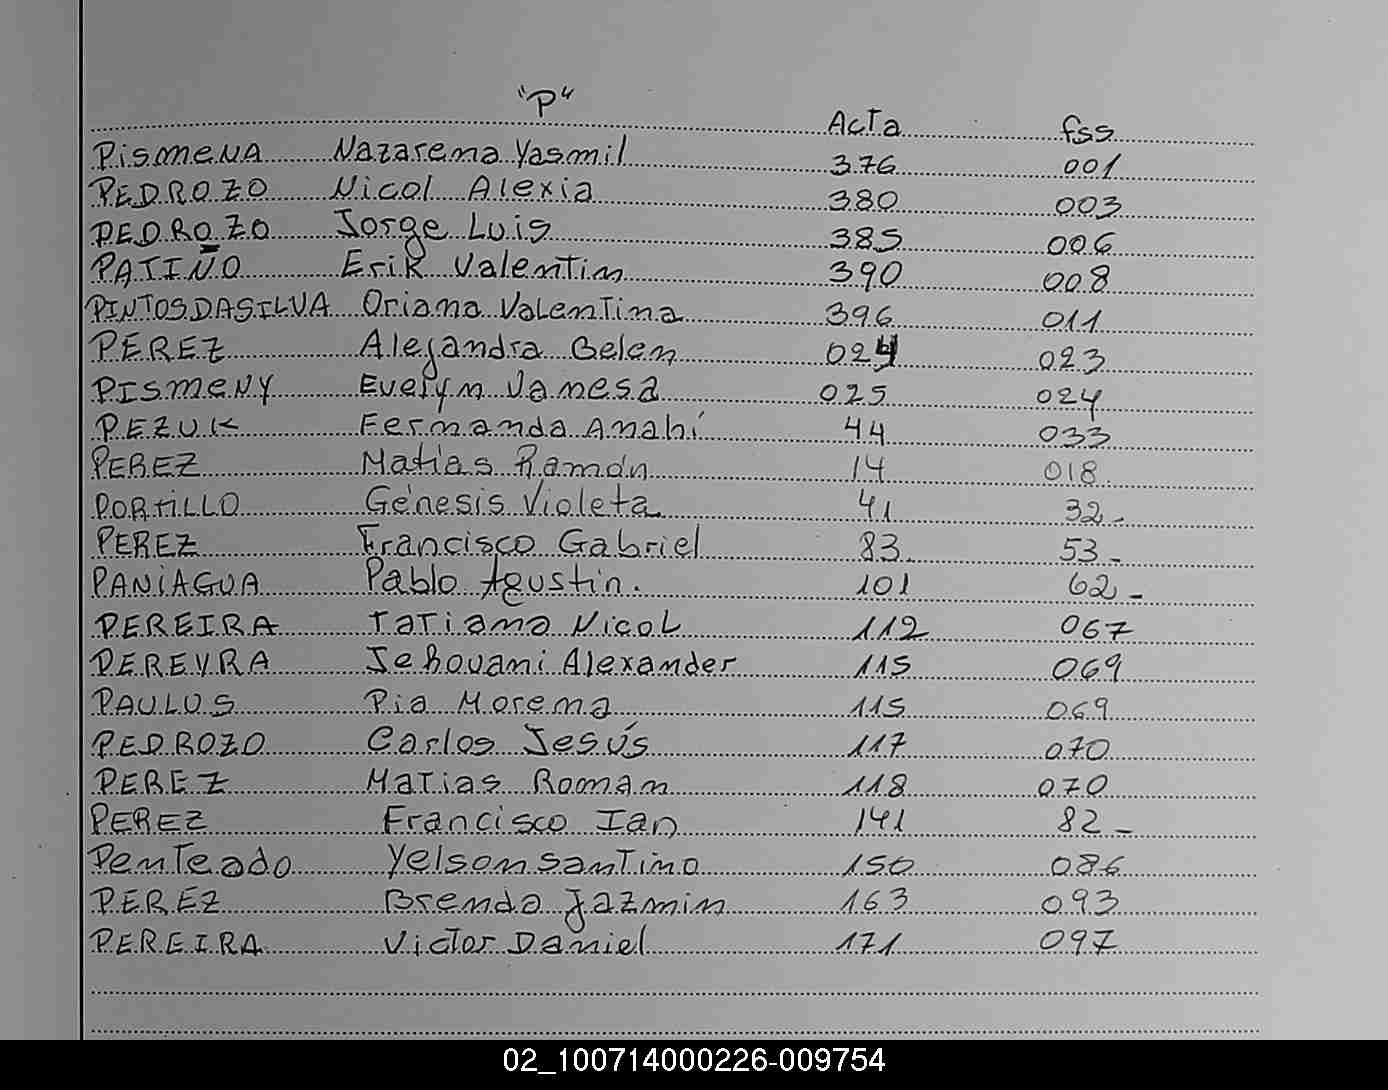 "P"
Acta fss
PismeNA Nazarena Yasmil 376 001
PEDROZO Nicol Alexia 380 003
PEDROZO Jorge Luis 385 006
PATIÑO Erik Valentin 390 008
PINTOS DA SILVA Oriana Valentina 396 011
PEREZ Alejandra Belen 024 023
PISmeNY Evelyn Vanesa 025 024
PEZUK Fernanda Anahí 44 033
PEREZ Matías Ramón 14 018
PORtiLLO Génesis Violeta 41 32-
PEREZ Francisco Gabriel 83 53-
PANiAGUA Pablo Agustín. 101 62-
PEREIRA Tatiana Nicol 112 067
PEREYRA Jehovani Alexander 115 069
PAULUS Pia Morena 115 069
PEDROZO Carlos Jesús 117 070
PEREZ Matias Roman 118 070
PEREZ Francisco Ian 141 82-
Penteado Yelson Santino 150 086
PEREZ Brenda Jazmin 163 093
PEREIRA Victor Daniel 171 097
02_100714000226-009754